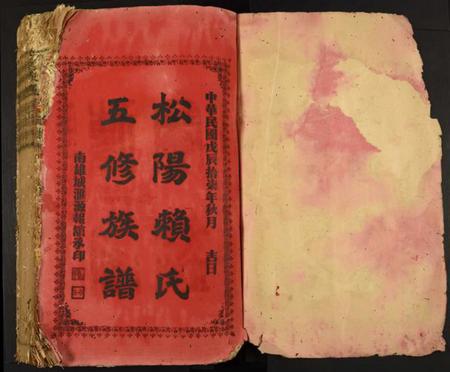 中華民國戊辰拾柒年秋月 吉日
松陽賴氏
五修族譜
南雄城滙源報館承印